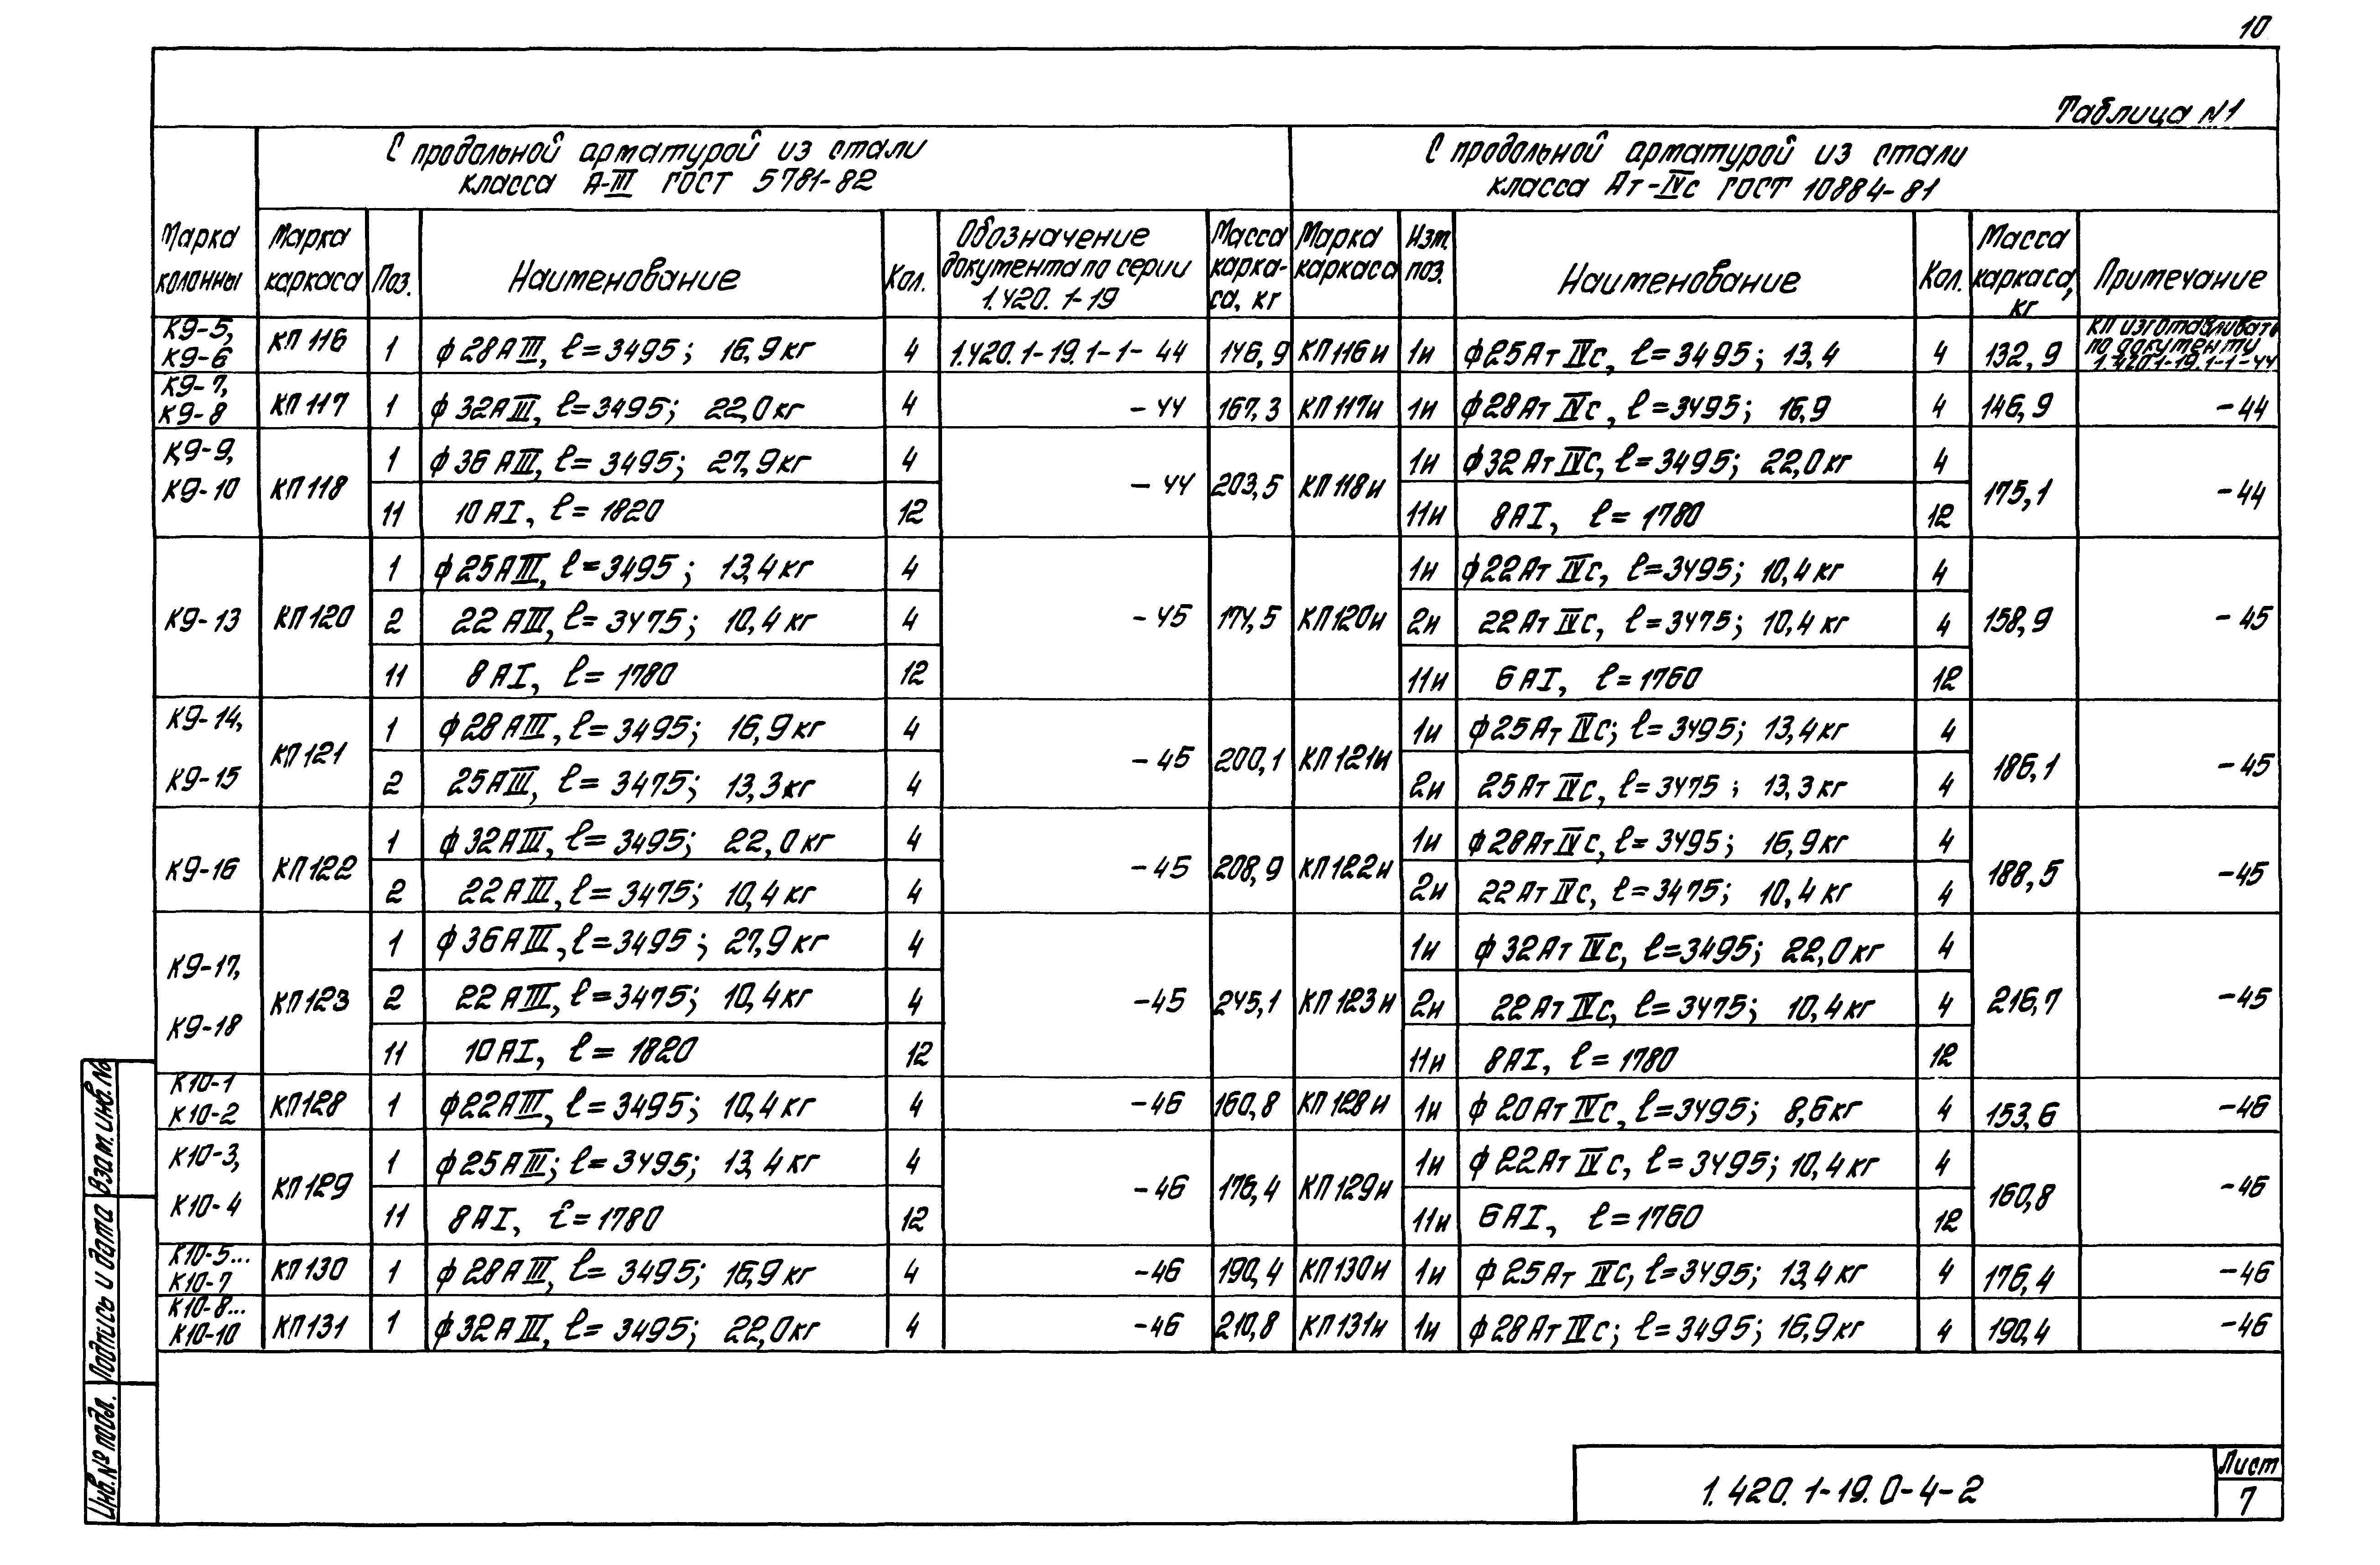 10
Таблица N1
Марка колонны
С продольной арматурой из стали
класса А-III ГОСТ 5781-82
С продольной арматурой из стали
класса Ат-IVс ГОСТ 10884-81
Марка каркаса | Поз. | Наименование | Кол. | Обозначение документа по серии 1.420.1-19 | Масса карка-са, кг | Марка каркаса | Изм. поз. | Наименование | Кол. | Масса каркаса, кг | Примечание
К9-5, К9-6 | КП116 | 1 | ф28АIII, ℓ=3495; 16,9кг | 4 | 1.420.1-19.1-1-44 | 146,9 | КП116и | 1и | ф25АтIVс, ℓ=3495; 13,4 | 4 | 132,9 | КП изготавливать по документу 1.420.1-19.1-1-44
К9-7, К9-8 | КП117 | 1 | ф32АIII, ℓ=3495; 22,0кг | 4 | -44 | 167,3 | КП117и | 1и | ф28АтIVс, ℓ=3495; 16,9 | 4 | 146,9 | -44
К9-9, К9-10 | КП118 | 1 | ф36АIII, ℓ=3495; 27,9кг | 4 | -44 | 203,5 | КП118и | 1и | ф32АтIVс, ℓ=3495; 22,0кг | 4 | 175,1 | -44
11 | 10АI, ℓ=1820 | 12 | 11и | 8АI, ℓ=1780 | 12
К9-13 | КП120 | 1 | ф25АIII, ℓ=3495; 13,4кг | 4 | -45 | 174,5 | КП120и | 1и | ф22АтIVс, ℓ=3495; 10,4кг | 4 | 158,9 | -45
2 | 22АIII, ℓ=3475; 10,4кг | 4 | 2и | 22АтIVс, ℓ=3475; 10,4кг | 4
11 | 8АI, ℓ=1780 | 12 | 11и | 6АI, ℓ=1760 | 12
К9-14, К9-15 | КП121 | 1 | ф28АIII, ℓ=3495; 16,9кг | 4 | -45 | 200,1 | КП121и | 1и | ф25АтIVс; ℓ=3495; 13,4кг | 4 | 186,1 | -45
2 | 25АIII, ℓ=3475; 13,3кг | 4 | 2и | 25АтIVс, ℓ=3475; 13,3кг | 4
К9-16 | КП122 | 1 | ф32АIII, ℓ=3495; 22,0кг | 4 | -45 | 208,9 | КП122и | 1и | ф28АтIVс, ℓ=3495; 16,9кг | 4 | 188,5 | -45
2 | 22АIII, ℓ=3475; 10,4кг | 4 | 2и | 22АтIVс, ℓ=3475; 10,4кг | 4
К9-17, К9-18 | КП123 | 1 | ф36АIII, ℓ=3495; 27,9кг | 4 | -45 | 245,1 | КП123и | 1и | ф32АтIVс, ℓ=3495; 22,0кг | 4 | 216,7 | -45
2 | 22АIII, ℓ=3475; 10,4кг | 4 | 2и | 22АтIVс, ℓ=3475; 10,4кг | 4
11 | 10АI, ℓ=1820 | 12 | 11и | 8АI, ℓ=1780 | 12
К10-1 К10-2 | КП128 | 1 | ф22АIII, ℓ=3495; 10,4кг | 4 | -46 | 160,8 | КП128и | 1и | ф20АтIVс, ℓ=3495; 8,6кг | 4 | 153,6 | -46
К10-3, К10-4 | КП129 | 1 | ф25АIII; ℓ=3495; 13,4кг | 4 | -46 | 176,4 | КП129и | 1и | ф22АтIVс, ℓ=3495; 10,4кг | 4 | 160,8 | -46
11 | 8АI, ℓ=1780 | 12 | 11и | 6АI, ℓ=1760 | 12
К10-5... К10-7 | КП130 | 1 | ф28АIII, ℓ=3495; 16,9кг | 4 | -46 | 190,4 | КП130и | 1и | ф25АтIVс, ℓ=3495; 13,4кг | 4 | 176,4 | -46
К10-8... К10-10 | КП131 | 1 | ф32АIII, ℓ=3495; 22,0кг | 4 | -46 | 210,8 | КП131и | 1и | ф28АтIVс; ℓ=3495; 16,9кг | 4 | 190,4 | -46
Взам.инв.№
Подпись и дата
Инв.№ подл.
1.420.1-19.0-4-2
Лист
7